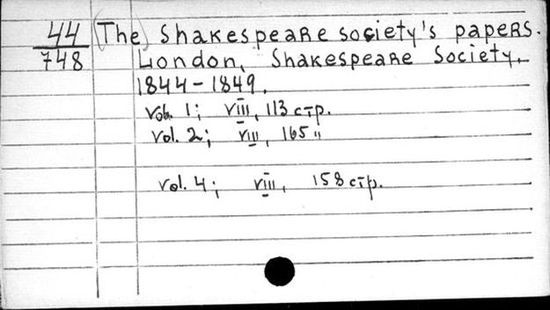 44 (The) Shakespeare society's papers.
748 London, Shakespeare Society,
1844-1849.
vol. 1; viii, 113 стр.
vol. 2; viii, 165 "
vol. 4; viii, 158 стр.